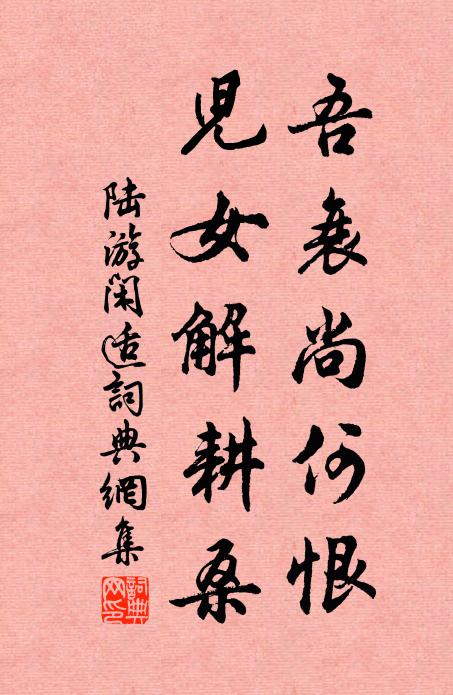 吾衰尚何恨
兒女解耕桑
陆游閑适詞典網集
詞典网印